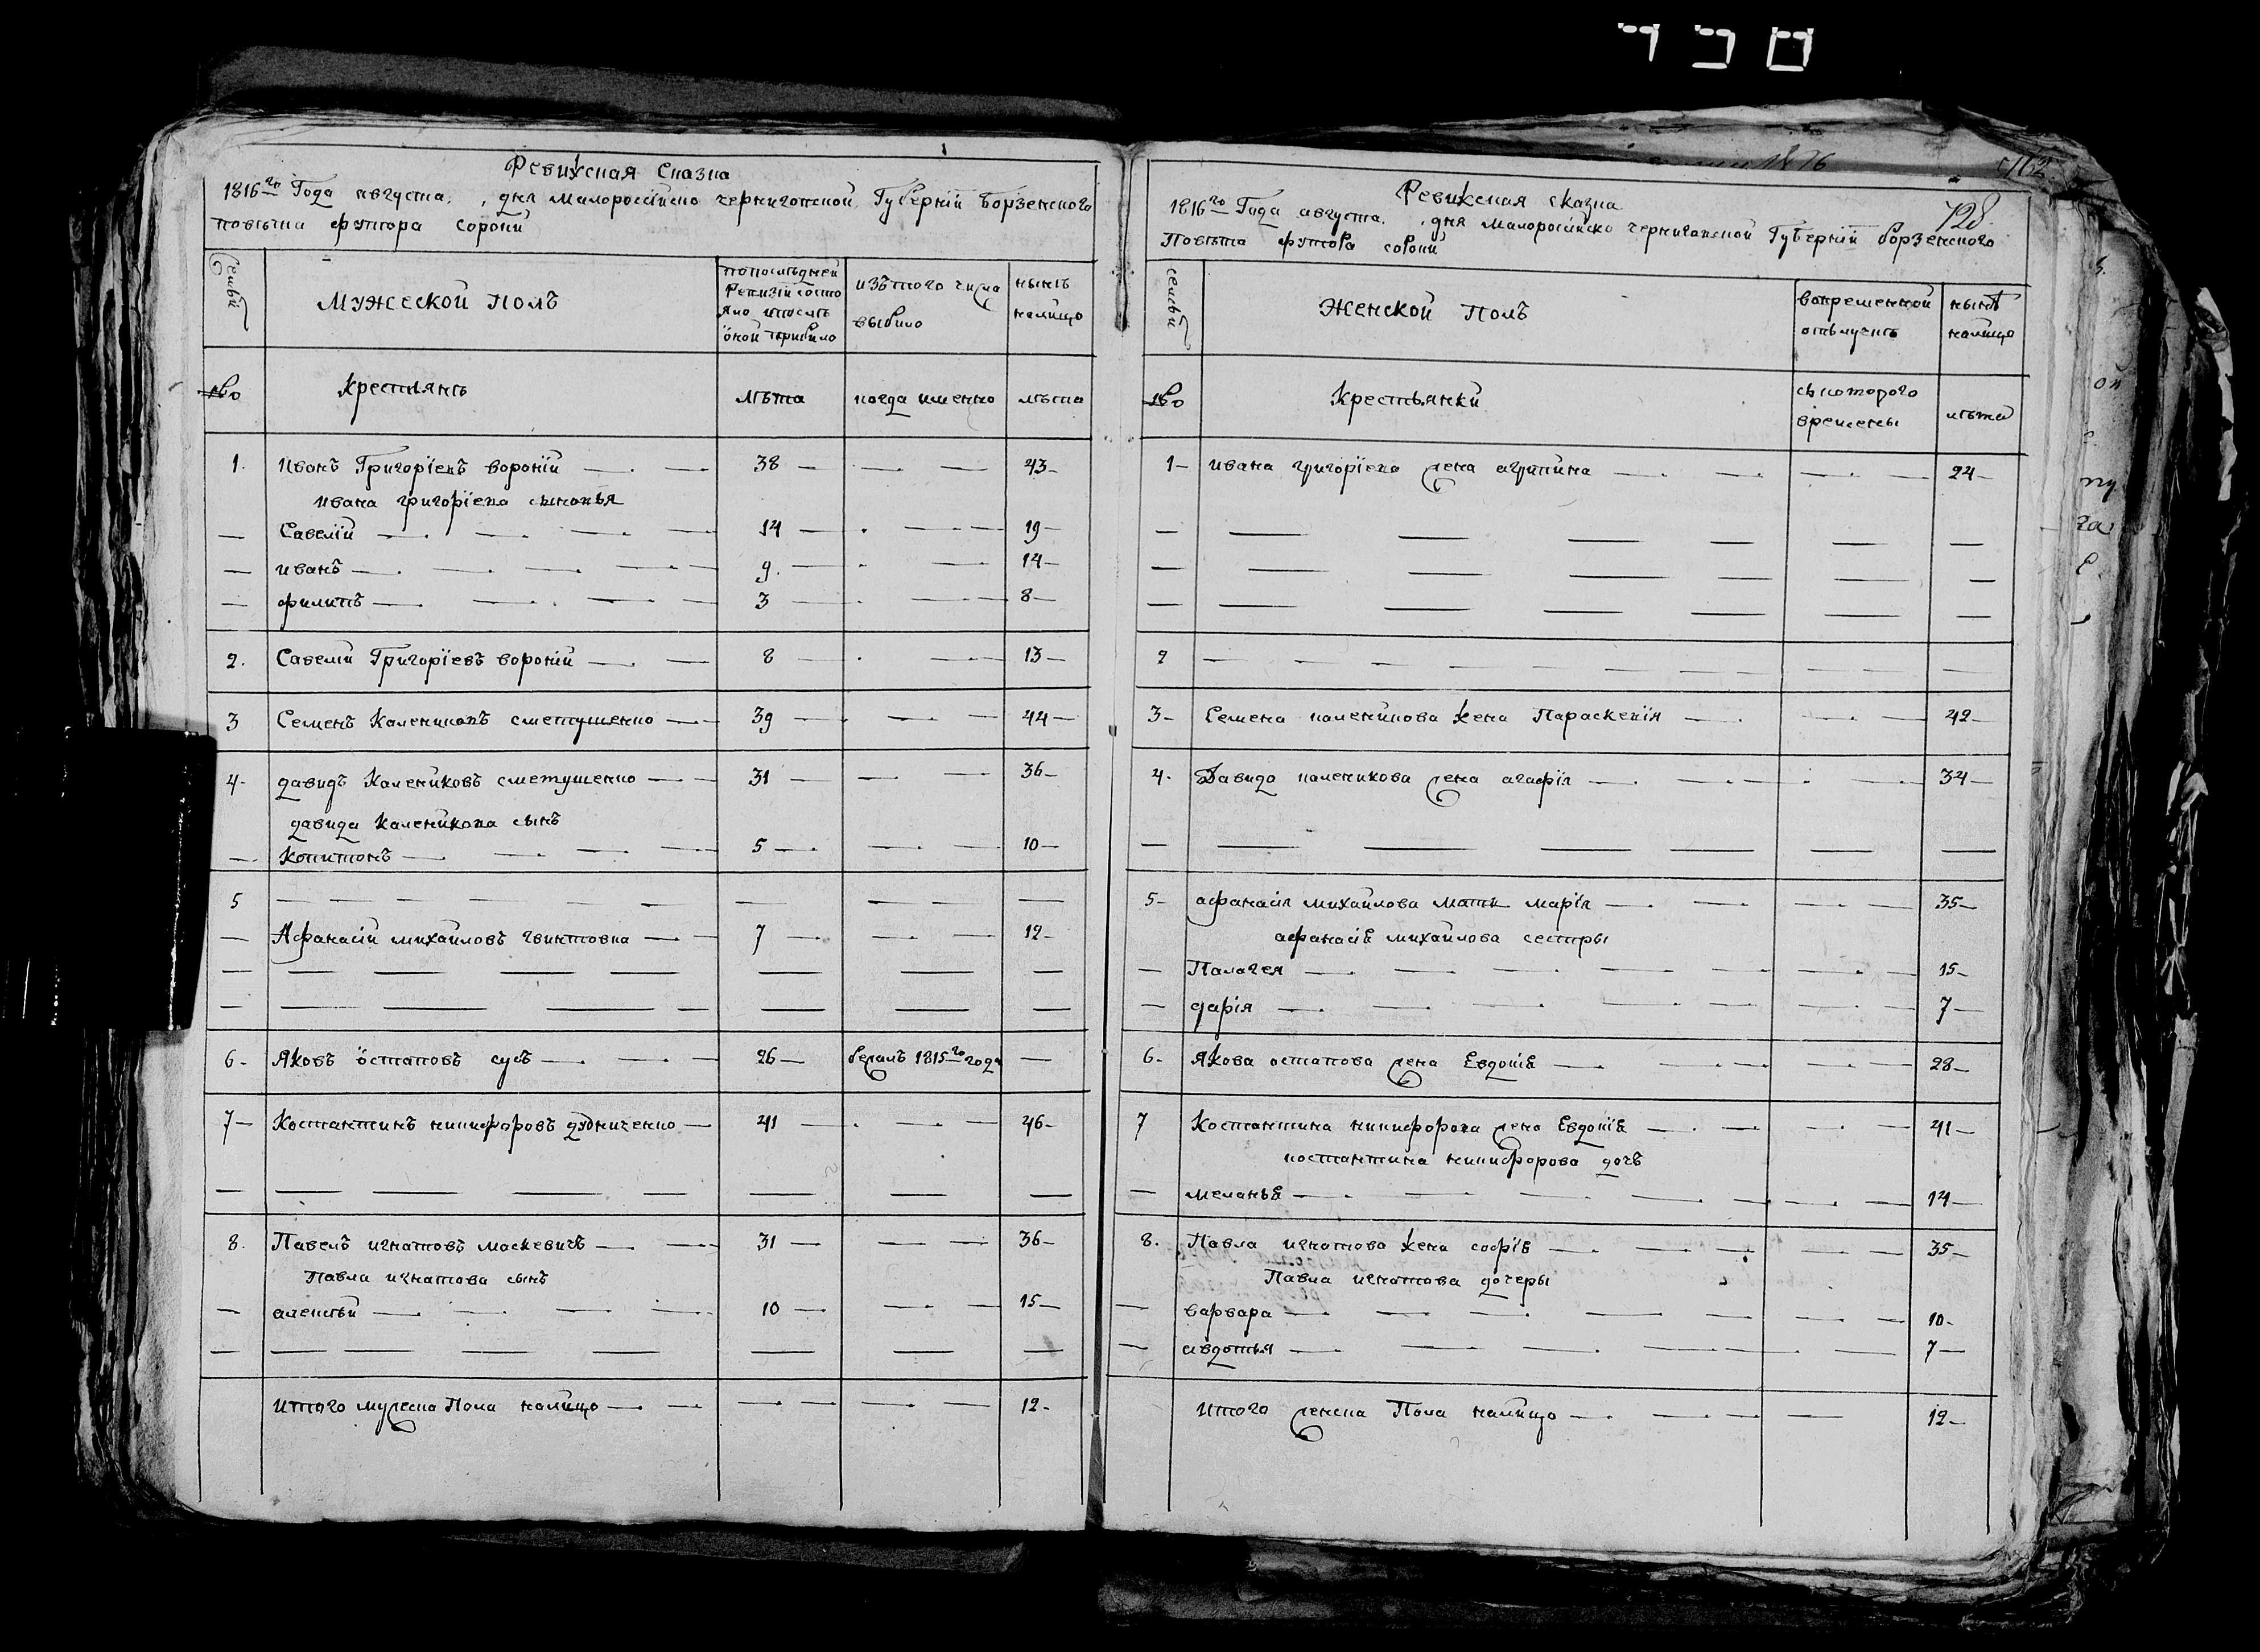 Ревижская Сказка
1816го Года августа. , дня Малороссійско черниговской Губерніи Борзенского
повѣта футора сороки
Семьи
Мужеской Полъ
попослѣдней Ревизіи состояло ипослѣ оной прибило
изъ того числа выбило
нынѣ налицо
Крестьянѣ
лѣта
когда именно
лѣта
1. иванъ Григоріевъ вороній — 38 — 43
ивана григоріева сыновья
— Савелій — 14 — 19
— иванъ — 9. — 14
— филипъ — 3 — 8
2. Савелій Григоріевъ вороній — 8 — 13
3 Семенъ Калениковъ сметушенко — 39 — 44
4 давидъ Калениковъ сметушенко — 31 — 36
давида Каленикова сынъ
— Копитонъ — 5 — 10
5 — — — — —
— Афанасій михайловъ гвинтовка — 7 — 12
6 Яковъ остаповъ сусъ — 26 — бежалъ 1815го года —
7 Костантинъ никифоровъ дудниченко — 41 — 46
8. Павелъ игнатовъ маскевичъ — 31 — 36
Павла игнатова сынъ
— алексѣй — 10 — 15
итого мужеска Пола налицо — 12
728
Ревижская сказка
1816го Года августа. , дня малоросійско черниговской Губерніи борзенского
Повѣта футора сороки
семьи
Женской Полъ
вовременной отълучкѣ
нынѣ налицо
Крестьянки
съ которого времены
лѣта
1 ивана григоріева жена агупина — 24
2 — — — — —
3 Семена каленикова жена Параскевія — 42
4. Давида каленикова жена агафія — 34
5 афанасія михайлова мати марія — 35
афанасія михайлова сестры
— Палагея — 15
— дарія — 7
6. Якова остапова жена Евдокія — 28
7 Костантина никифорова жена Евдокія — 41
костантина никифорова дочъ
— меланья — 14
8. Павла игнатова жена софія — 35
Павла игнатова дочеры
— варвара — 10
— авдотья — 7
итого женска Пола налицо — 12